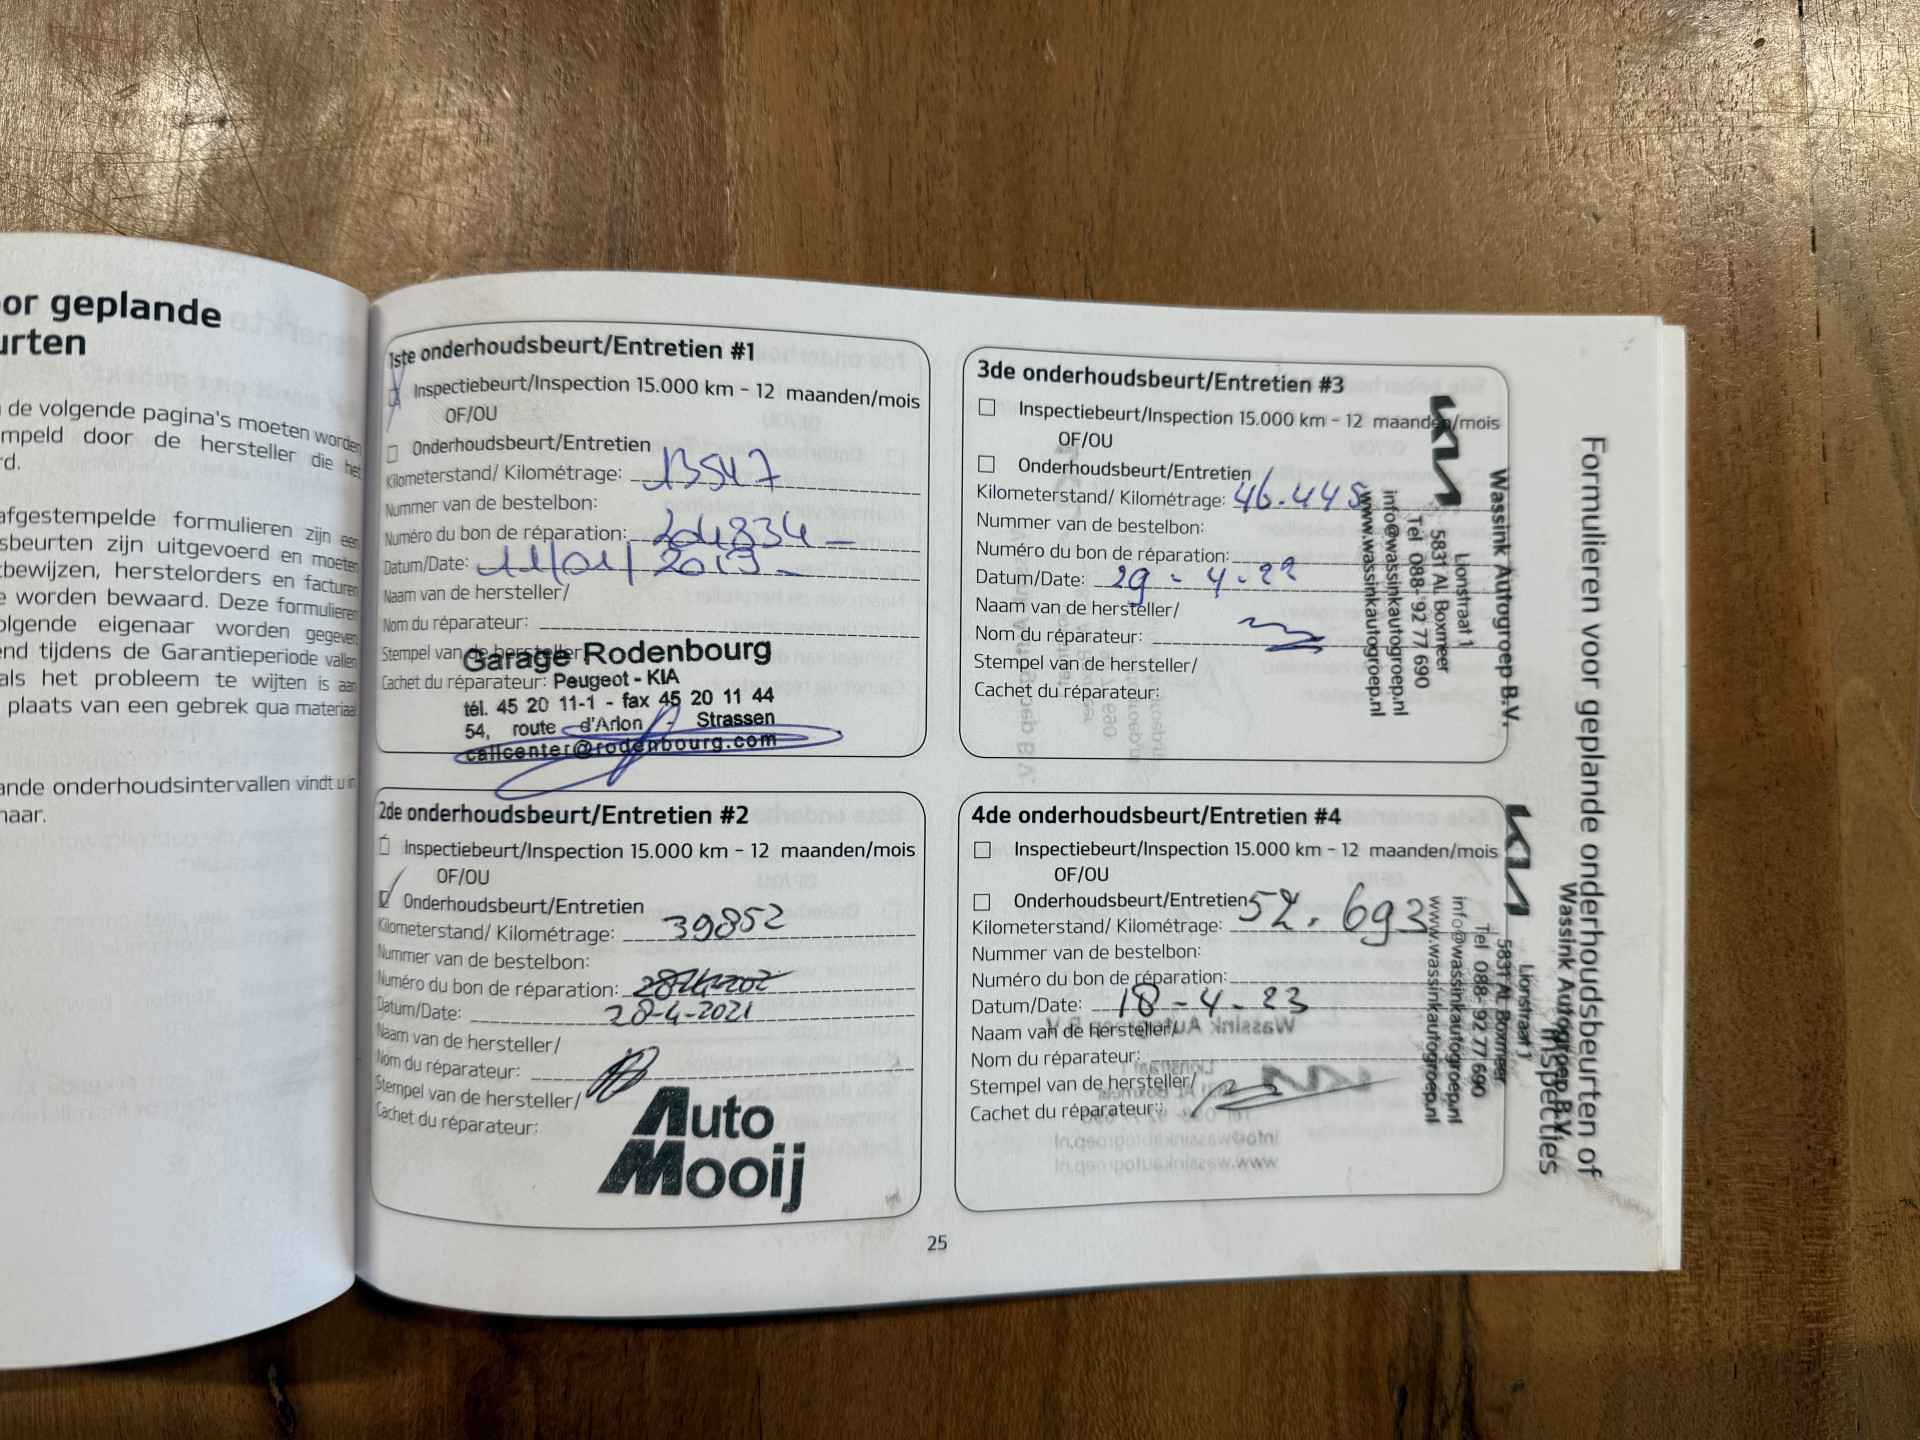 or geplande
urten
de volgende pagina's moeten worden
mpeld door de hersteller die het
rd.
afgestempelde formulieren zijn een
sbeurten zijn uitgevoerd en moeten
bewijzen, herstelorders en facturen
e worden bewaard. Deze formulieren
olgende eigenaar worden gegeven
end tijdens de Garantieperiode vallen
als het probleem te wijten is aan
plaats van een gebrek qua materiaal
ande onderhoudsintervallen vindt u in
naar.
1ste onderhoudsbeurt/Entretien #1
Inspectiebeurt/Inspection 15.000 km - 12 maanden/mois
OF/OU
Onderhoudsbeurt/Entretien
Kilometerstand/ Kilométrage: 13547
Nummer van de bestelbon:
Numéro du bon de réparation: 204834
Datum/Date: 11/01/2019
Naam van de hersteller/
Nom du réparateur:
Stempel van de hersteller/
Cachet du réparateur:
Garage Rodenbourg
Peugeot - KIA
tél. 45 20 11-1 - fax 45 20 11 44
54, route d'Arlon - Strassen
callcenter@rodenbourg.com
2de onderhoudsbeurt/Entretien #2
Inspectiebeurt/Inspection 15.000 km - 12 maanden/mois
OF/OU
Onderhoudsbeurt/Entretien
Kilometerstand/ Kilométrage: 39852
Nummer van de bestelbon:
Numéro du bon de réparation:
Datum/Date: 28-4-2021
Naam van de hersteller/
Nom du réparateur:
Stempel van de hersteller/
Cachet du réparateur:
Auto
Mooij
3de onderhoudsbeurt/Entretien #3
Inspectiebeurt/Inspection 15.000 km - 12 maanden/mois
OF/OU
Onderhoudsbeurt/Entretien
Kilometerstand/ Kilométrage: 46.445
Nummer van de bestelbon:
Numéro du bon de réparation:
Datum/Date: 29-4-22
Naam van de hersteller/
Nom du réparateur:
Stempel van de hersteller/
Cachet du réparateur:
KIA
Wassink Autogroep B.V.
Lionstraat 1
5831 AL Boxmeer
Tel 088- 92 77 690
info@wassinkautogroep.nl
www.wassinkautogroep.nl
4de onderhoudsbeurt/Entretien #4
Inspectiebeurt/Inspection 15.000 km - 12 maanden/mois
OF/OU
Onderhoudsbeurt/Entretien
Kilometerstand/ Kilométrage: 52.693
Nummer van de bestelbon:
Numéro du bon de réparation:
Datum/Date: 18-4-23
Naam van de hersteller/
Nom du réparateur:
Stempel van de hersteller/
Cachet du réparateur:
KIA
Wassink Autogroep B.V.
Lionstraat 1
5831 AL Boxmeer
Tel 088- 92 77 690
info@wassinkautogroep.nl
www.wassinkautogroep.nl
Formulieren voor geplande onderhoudsbeurten of
inspecties
25